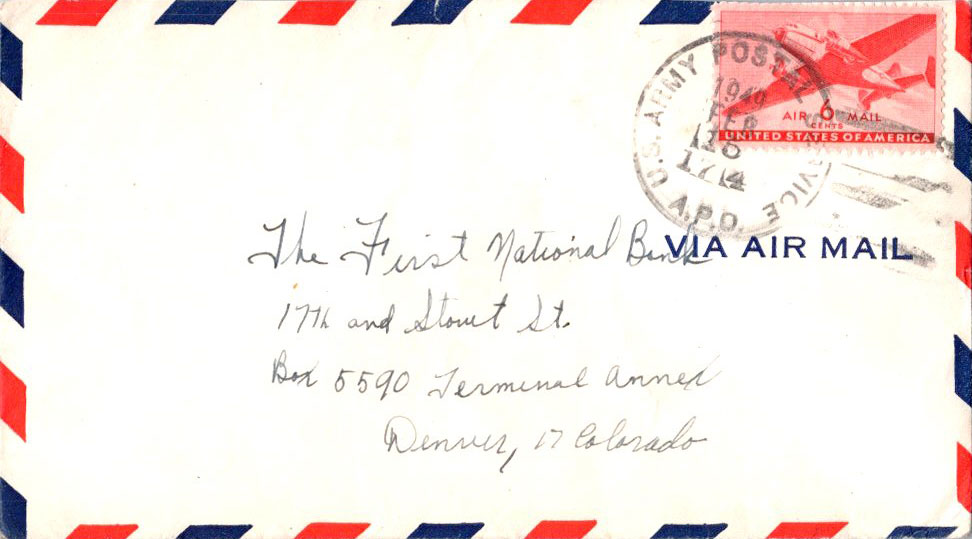 U.S. ARMY POSTAL SERVICE
A.P.O.
1949
FEB
1714
AIR 6 MAIL
CENTS
UNITED STATES OF AMERICA
VIA AIR MAIL
The First National Bank
17th and Stout St.
Box 5590 Terminal Annex
Denver, 17 Colorado